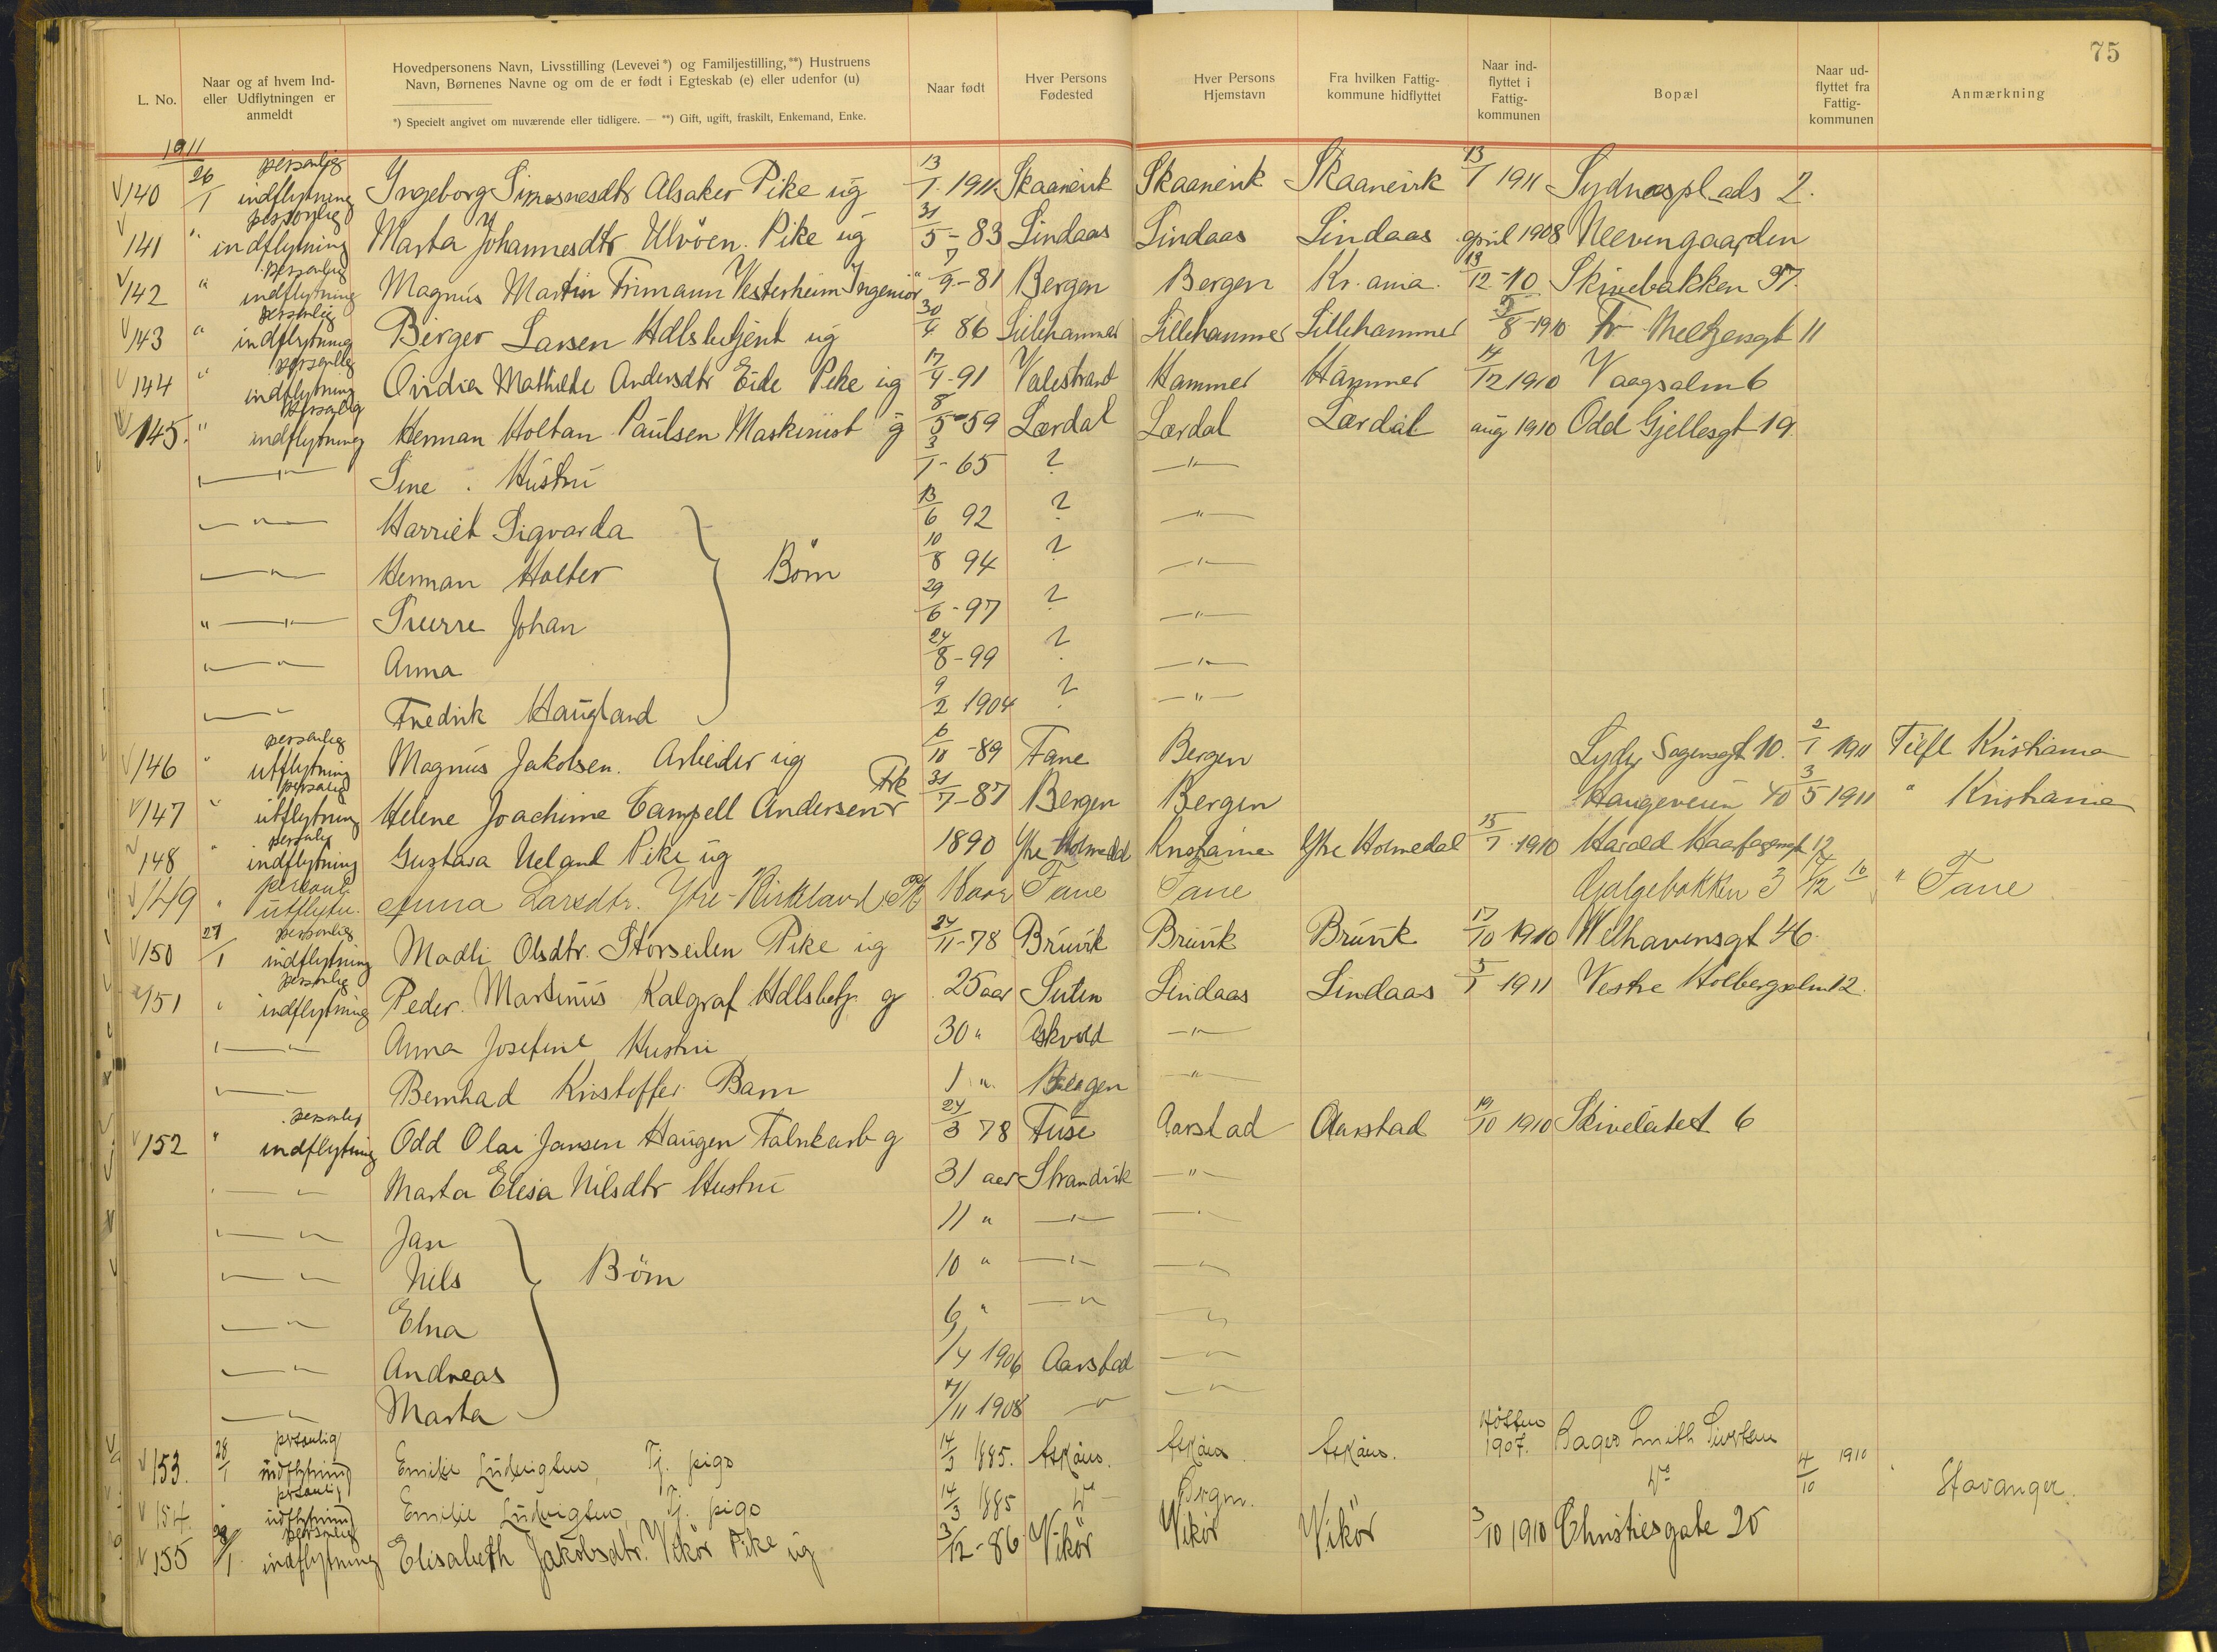 75
L. No.
Naar og af hvem Ind- eller Udflytningen er anmeldt
Hovedpersonens Navn, Livsstilling (Levevei*) og Familjestilling,**) Hustruens Navn, Børnenes Navne og om de er født i Egteskab (e) eller udenfor (u)
*) Specielt angivet om nuværende eller tidligere. — **) Gift, ugift, fraskilt, Enkemand, Enke.
Naar født
Hver Persons Fødested
Hver Persons Hjemstavn
Fra hvilken Fattig- kommune hidflyttet
Naar ind- flyttet i Fattig- kommunen
Bopæl
Naar ud- flyttet fra Fattig- kommunen
Anmærkning
1911
140 26/1 personlig indflytning Ingeborg Simesnesdtr Alsaker Pike ug 13/1 1911 Skaanevik Skaanevik Skaanevik 13/1 1911 Sydnæsplads 2.
141 " personlig indflytning Marta Johannesdtr Ulvöen. Pike ug 31/5 - 83 Lindaas Lindaas Lindaas april 1908 Neevengaarden
142 " personlig indflytning Magnus Martin Frimann Vesterheim Ingeniör 7/9 - 81 Bergen Bergen Kr. ania. 13/12 - 10 Skivebakken 37.
143 " personlig indflytning Birger Larsen Hdlsbetjent ug 30/4 86 Lillehammer Lillehammer Lillehammer 5/8 - 1910 Fr Meltzersgt 11
144 " personlig indflytning Ovidia Mathilde Andersdtr Eide Pike ug 17/4 - 91 Valestrand Hammer Hammer 14/12 1910 Vaagsalm 6
145. " personlig indflytning Herman Holtan Paulsen Maskinist g 8/5 - 59 Lærdal Lærdal Lærdal aug 1910 Odd Gjellesgt 19.
— " — Sine . Hustru 3/1 - 65 ? — " —
— " — Harriet Sigvarda 13/6 92 ? — " —
— " — Herman Holter } Börn 10/8 94 ? — " —
" — " — Sverre Johan 29/6 - 97 ? — " —
— " — Anna 24/8 - 99 ? — " —
— " — Fredrik Haugland 9/2 1904 ? — " —
146 " personlig utflytning Magnus Jakobsen. Arbeider ug 6/10 - 89 Fane Bergen Lyder Sagensgt 10. 2/1 1911 Tilfl Kristiania
147 " personlig utflytning Helene Joachime Campell Andersen Frk 31/7 - 87 Bergen Bergen Haugeveien 40 3/5 1911 " Kristiania
148 " personlig indflytning Gustava Ueland Pike ug 1890 Ytre Holmedal Kristiania Ytre Holmedal 15/7 1910 Harald Haarfagersgt 12
149 " personl. utflytn. Anna Larsdtr. Ytre-Kirkland. Pk 18 aar Fane Fane Galgebakken 3 " Fane
150 27/1 personlig indflytning Madli Olsdtr. Storseilen Pike ug 24/11 - 78 Bruvik Bruvik Bruvik 17/10 1910 Welhavensgt 46.
151 " personlig indflytning Peder. Martinus Kalgraf Hdlsbetj. g 25 aar Lindaas Lindaas 5/1 1911 Vestre Holbergsalm 12.
— " — Anna Josefine Hustru 30 " Askvold — " —
— " — Bernhad Kristoffer Barn 1 " Bergen — " —
152 " personlig indflytning Odd Olai Jansen Haugen Fabrikarb g 24/3 78 Fuse Aarstad Aarstad 19/10 1910 6
— " — Marta Elisa Nilsdtr Hustru 31 aar Strandvik — " —
— " — Jan 11 " — " — — " —
— " — Nils } Börn 10 " — " — — " —
— " — Elna 6 " — " — — " —
— " — Andreas 1/4 1906 Aarstad — " —
— " — Marta 4/11 1908 — " — " —
153. 28/1 personlig indflytning Emilie Ludvigsen, Tj. pige 14/3 1885. Askøen. Askøen. Askøen. Hösten 1907. Bager Smith Sivertsen
154. " personlig udflytning Emilie Ludvigsen Tj. pige 14/3 1885 Do — Bergen. Do 4/10 1910 " Stavanger.
155 28/1 personlig indflytning Elisabeth Jakobsdtr. Vikör Pike ug 3/12 - 86 Vikör Vikör Vikör 3/10 1910 Christiesgate 25